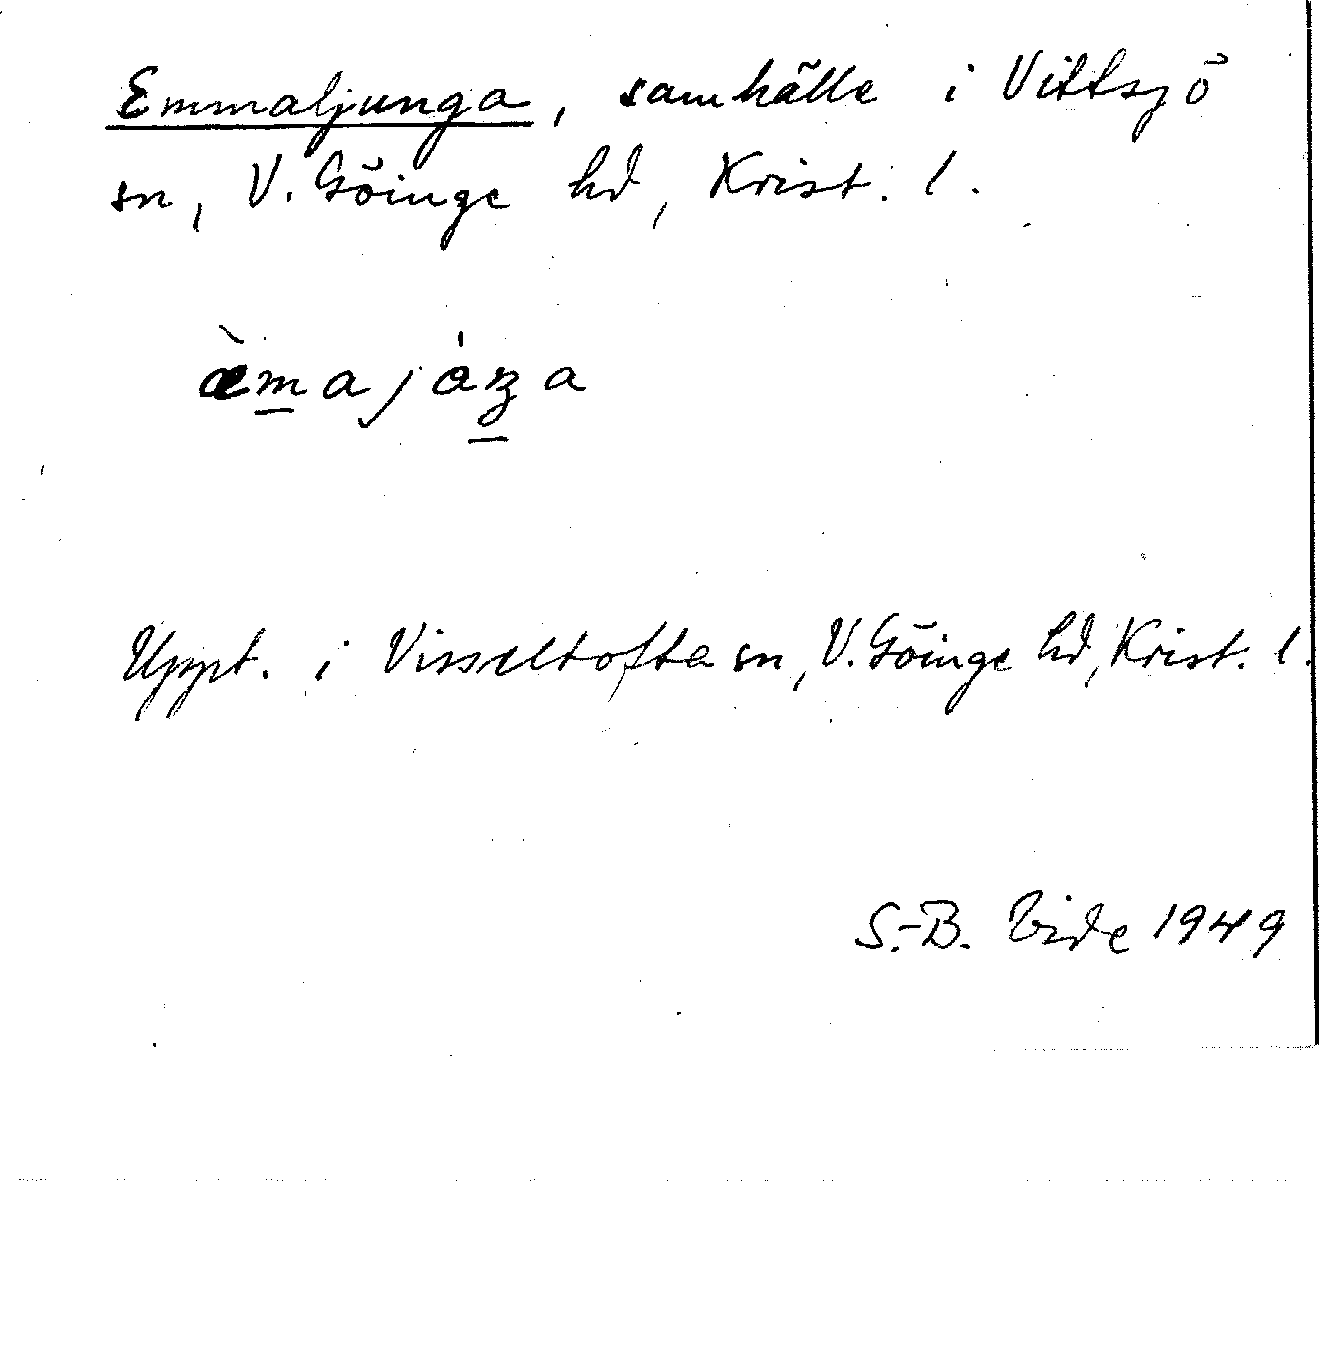 Emmaljunga, samhälle i Vittsjö
sn, V. Göinge hd, Krist. l.
æ̀m̱ajáŋ̱a
Uppt. i Visseltofta sn, V. Göinge hd, Krist. l.
S.-B. Vide 1949